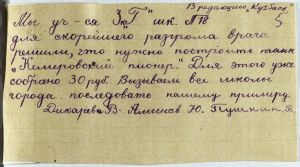 В редакцию „Кузбасс"
5
Мы уч-ся 3кл „Г" шк. №18
для скорейшего разгрома врага
решили, что нужно построить танк
„Кемеровский пионер." Для этого уже
собрано 30 руб. Вызываем все школы
города последовать нашему примеру.
Дикарева В. Ю. Пушкин. В.